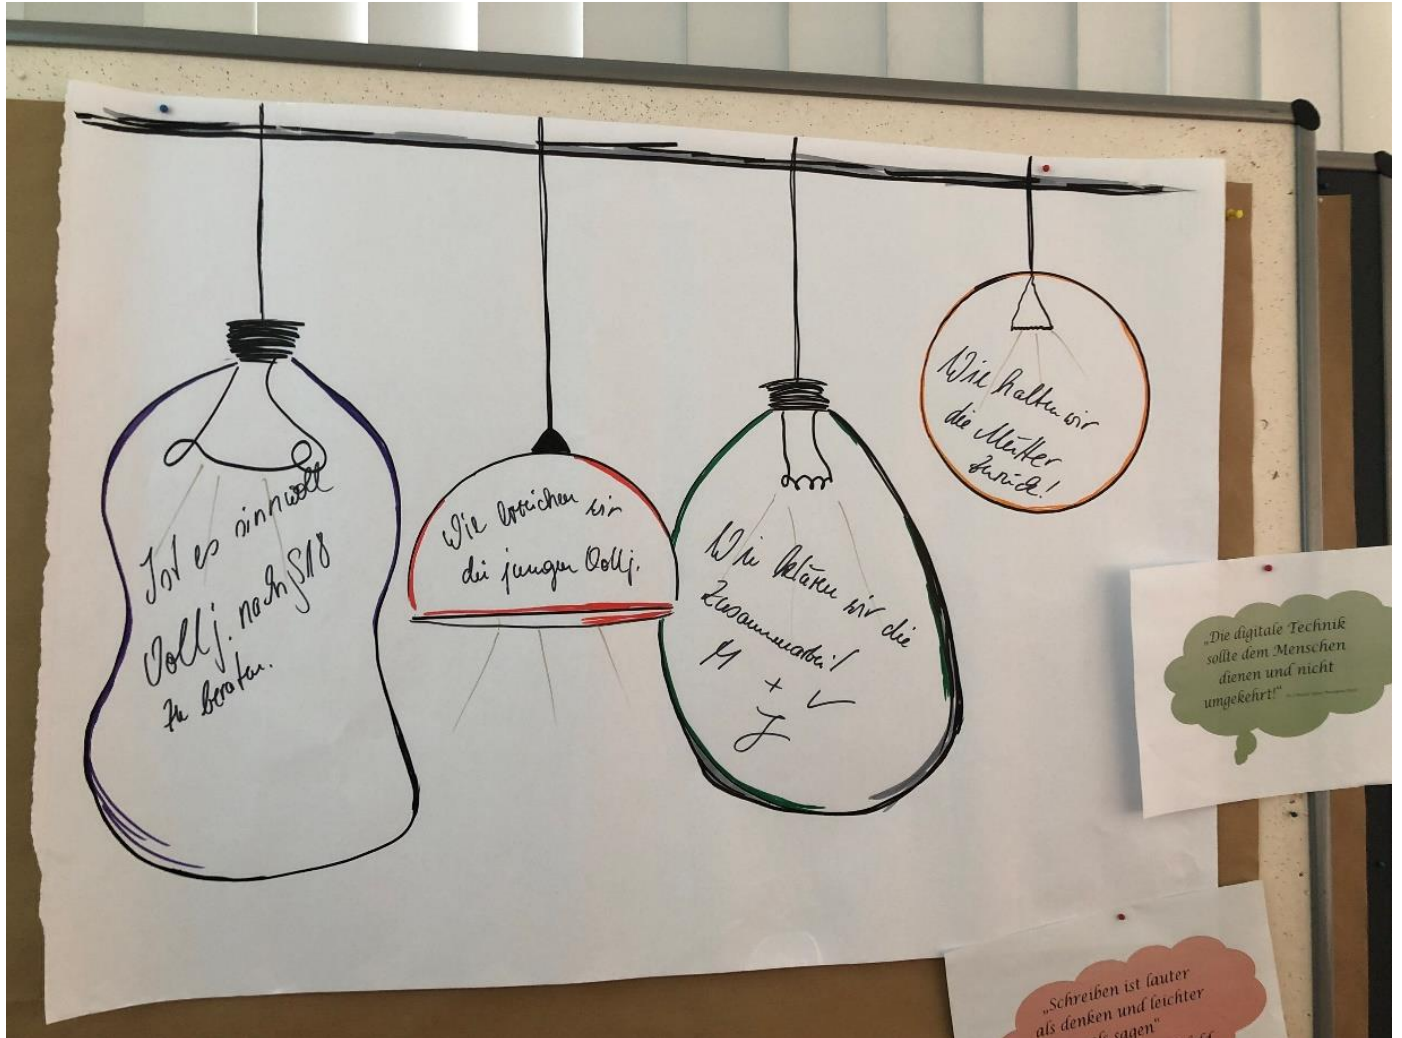 Ist es sinnvoll
Vollj. nach §18
zu beraten.
Wie erreichen wir
die jungen Vollj.
Wie klären wir die
Zusammenarbeit
M + V
J
Wie halten wir
die Mütter
zurück!
„Die digitale Technik
sollte dem Menschen
dienen und nicht
umgekehrt!“
„Schreiben ist lauter
als denken und leichter
als sagen“